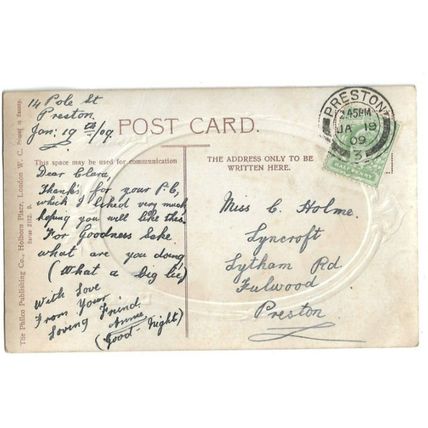 14 Pole St
Preston.
Jan: 19th/09.
POST CARD.
This space may be used for communication
THE ADDRESS ONLY TO BE
WRITTEN HERE.
Dear Clara,
Thanks for your P.C,
which I liked very much
hoping you will like this
For Goodness Sake
what are you doing
(What a big lie)
With Love
From Your
Loving Friend,
Annie
(Good-Night)
Miss C. Holme.
Lyncroft
Lytham Rd
Fulwood
Preston
PRESTON
2.45PM
JA 19
09
3
The Philco Publishing Co., Holborn Place, London W. C.
Series